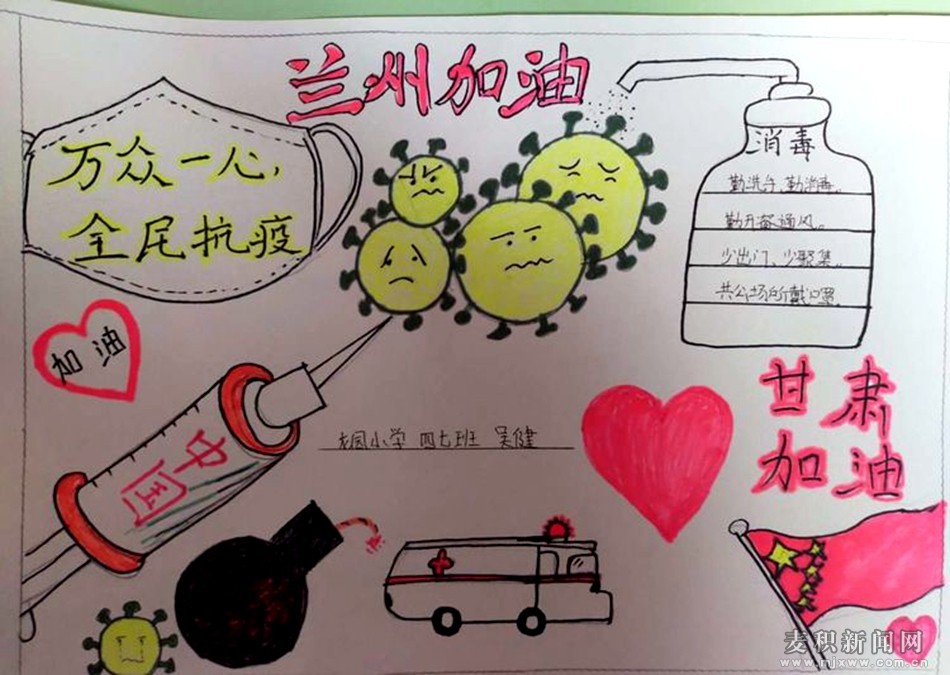 兰州加油
万众一心,
全民抗疫
消毒
勤洗手、勤消毒。
勤开窗通风。
少出门、少聚集。
共公场所戴口罩。
加油
甘肃
加油
中国
龙园小学 四七班 吴健
麦积新闻网
www.mjxww.com.cn